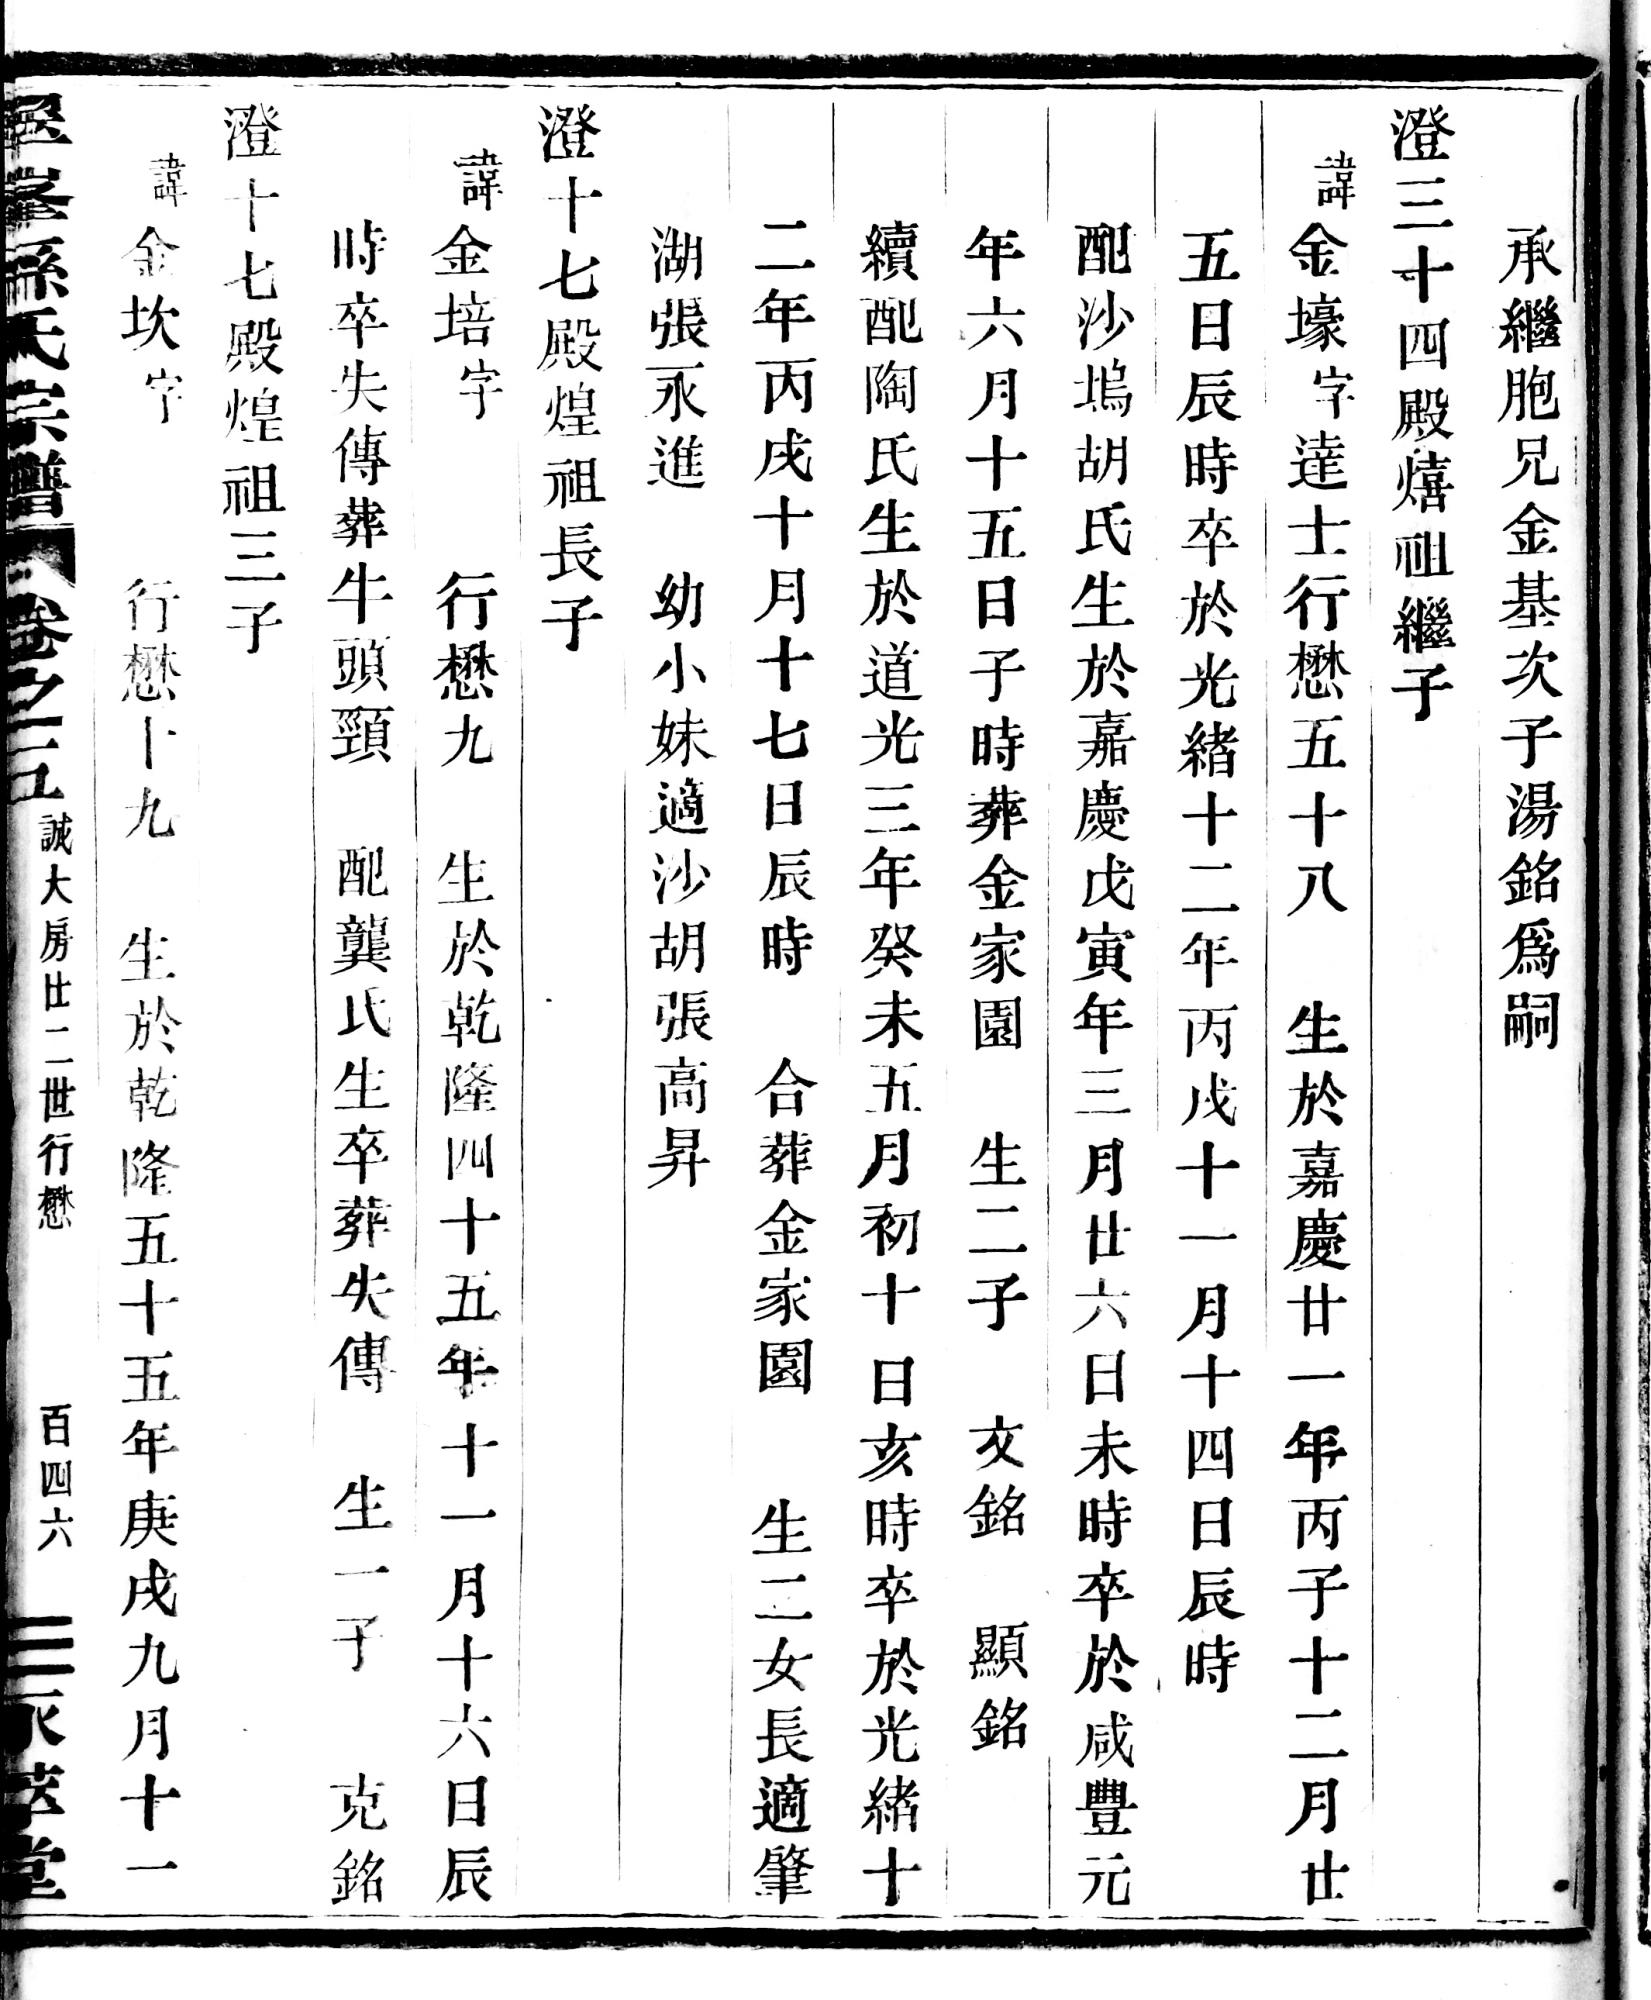 承繼胞兄金基次子湯銘爲嗣
澄三十四殿熺祖繼子
諱金壕字達士行懋五十八 生於嘉慶廿一年丙子十二月廿
五日辰時卒於光緒十二年丙戌十一月十四日辰時
配沙塢胡氏生於嘉慶戊寅年三月廿六日未時卒於咸豐元
年六月十五日子時葬金家園 生二子 文銘 顯銘
續配陶氏生於道光三年癸未五月初十日亥時卒於光緒十
二年丙戌十月十七日辰時 合葬金家園 生二女長適肇
湖張永進 幼小妹適沙胡張高昇
澄十七殿煌祖長子
諱金培字 行懋九 生於乾隆四十五年十一月十六日辰
時卒失傳葬牛頭頸 配龔氏生卒葬失傳 生一子 克銘
澄十七殿煌祖三子
諱金坎字 行懋十九 生於乾隆五十五年庚戌九月十一
峯孫氏宗譜 卷之二 誠大房廿二世行懋 百四六 永萃堂